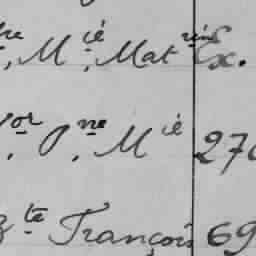 re, M ié, Mat rin Ex.
vor, P. ne M ié 270
Bte François 69